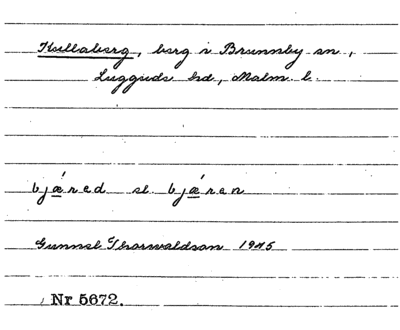 Kullaberg, berg i Brunnby sn,
Luggude hd, Malm. l.
bjǽred el. bjǽren
Gunnel Thorwaldson 1945
Nr 5672.